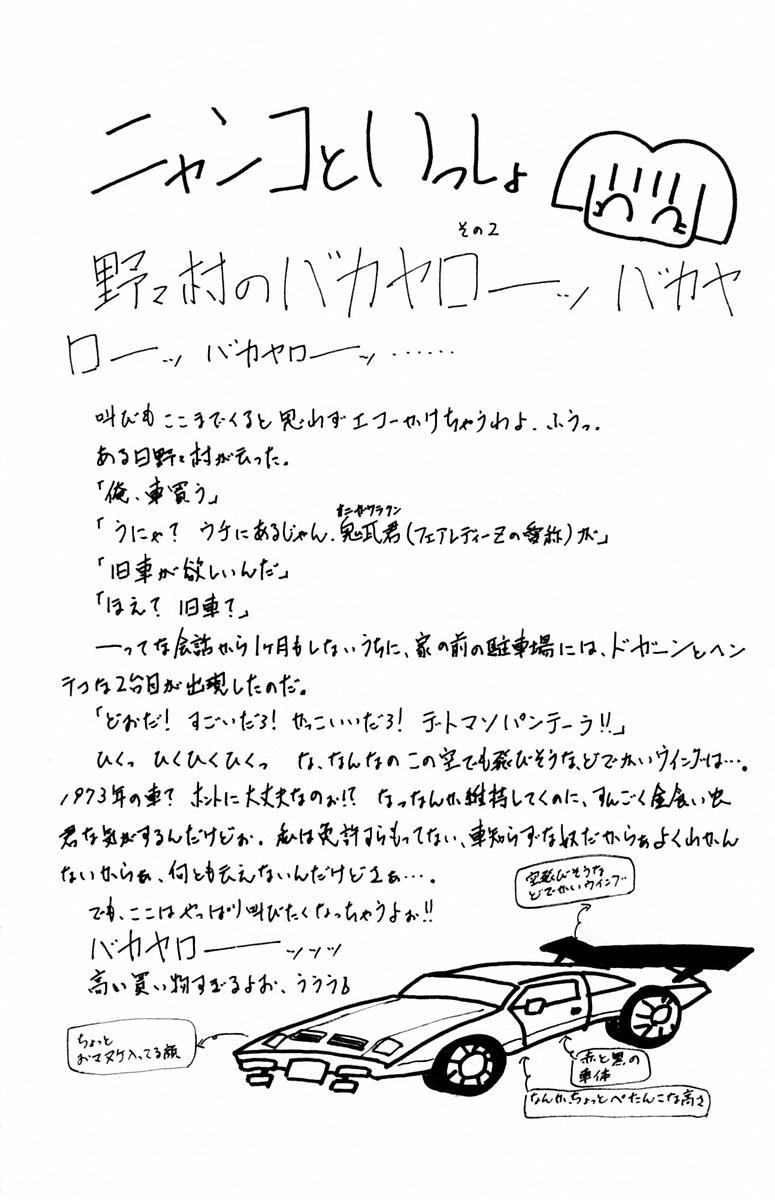 ニャンコといっしょ
その2
野々村のバカヤローーッ バカヤ
ローーッ バカヤローーッ……
叫びもここまでくると思わずエコーかけちゃうわよ。ふうっ。
ある日野々村が云った。
「俺、車買う」
「うにゃ? ウチにあるじゃん。鬼瓦君(フェアレディーZの愛称)が」
オニガワラクン
「旧車が欲しいんだ」
「ほえ? 旧車?」
ーってな会話から1ヶ月もしないうちに、家の前の駐車場には、ドガーンとヘン
テコな2台目が出現したのだ。
「どおだ! すごいだろ! かっこいいだろ! デ・トマソパンテーラ!!」
ひくっ ひくひくひくっ な、なんなの この空でも飛びそうな、どでかいウイングは…。
1973年の車? ホントに大丈夫なのぉ!? なっなんか維持してくのに、すんごく金食い虫
君な気がするんだけどぉ。私は免許すらもってない、車知らずな奴だからぁよくわかん
ないからぁ、何とも云えないんだけどさぁ…。
でも、ここはやっぱり叫びたくなっちゃうよぉ!!
バカヤローーーッッッ
高い買い物すぎるよお、ううう
空飛びそうな
どでかいウイング
ちょっと
おマヌケ入ってる顔
赤と黒の
車体
なんか、ちょっとぺたんこな高さ